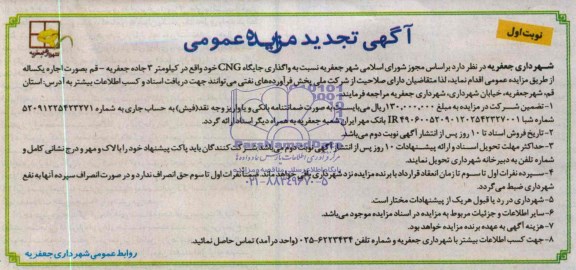 نوبت اول
آگهی تجدید مزایده عمومی
شهرداری جعفریه در نظر دارد براساس مجوز شورای اسلامی شهر جعفریه نسبت به واگذاری جایگاه CNG خود واقع در کیلومتر ۳ جاده جعفریه - قم بصورت اجاره یکساله
از طریق مزایده عمومی اقدام نماید، لذا متقاضیان دارای صلاحیت از شرکت ملی پخش فرآورده‌های نفتی می‌توانند جهت دریافت اسناد و کسب اطلاعات بیشتر به آدرس: استان
قم، شهر جعفریه، خیابان شهرداری، شهرداری جعفریه مراجعه فرمایند.
۱- تضمین شرکت در مزایده به مبلغ ۱۳۰.۰۰۰.۰۰۰ ریال می‌بایست به صورت ضمانتنامه بانکی و یا واریز وجه نقد (فیش) به حساب جاری به شماره ۵۲۰۹۱۲۲۵۴۲۳۳۷۱
شماره شبا IR ۴۹۰۶۰۰۵۲۰۹۰۱۲۰۲۵۴۲۳۲۷۰۰۱ بانک مهر ایران شعبه جعفریه به همراه دیگر اسناد ارائه گردد.
۲- تاریخ فروش اسناد تا ۱۰ روز پس از انتشار آگهی نوبت دوم می‌باشد.
۳- حداکثر مهلت تحویل اسناد و ارائه پیشنهادات ۱۰ روز پس از انتشار آگهی نوبت دوم می‌باشد. شرکت کنندگان باید پاکت پیشنهاد خود را با لاک و مهر و درج نشانی کامل و
شماره تلفن به دبیرخانه شهرداری تحویل نمایند.
۴- سپرده نفرات اول تا سوم تا زمان انعقاد قرارداد با برنده مزایده نزد شهرداری باقی خواهد ماند. ضمناً نفرات اول تا سوم حق انصراف ندارد و در صورت انصراف سپرده آنها به نفع
شهرداری ضبط می‌گردد.
۵- شهرداری در رد یا قبول هر یک از پیشنهادات مختار است.
۶- سایر اطلاعات و جزئیات مربوط به مزایده در اسناد مزایده موجود می‌باشد.
۷- هزینه آگهی به عهده برنده مزایده خواهد بود.
۸- جهت کسب اطلاعات بیشتر با شهرداری جعفریه و شماره تلفن ۶۲۲۳۴۳۴-۰۲۵ (واحد درآمد) تماس حاصل نمائید.
روابط عمومی شهرداری جعفریه
۰۲۱-۸۸۳۴۹۶۷۰-۵